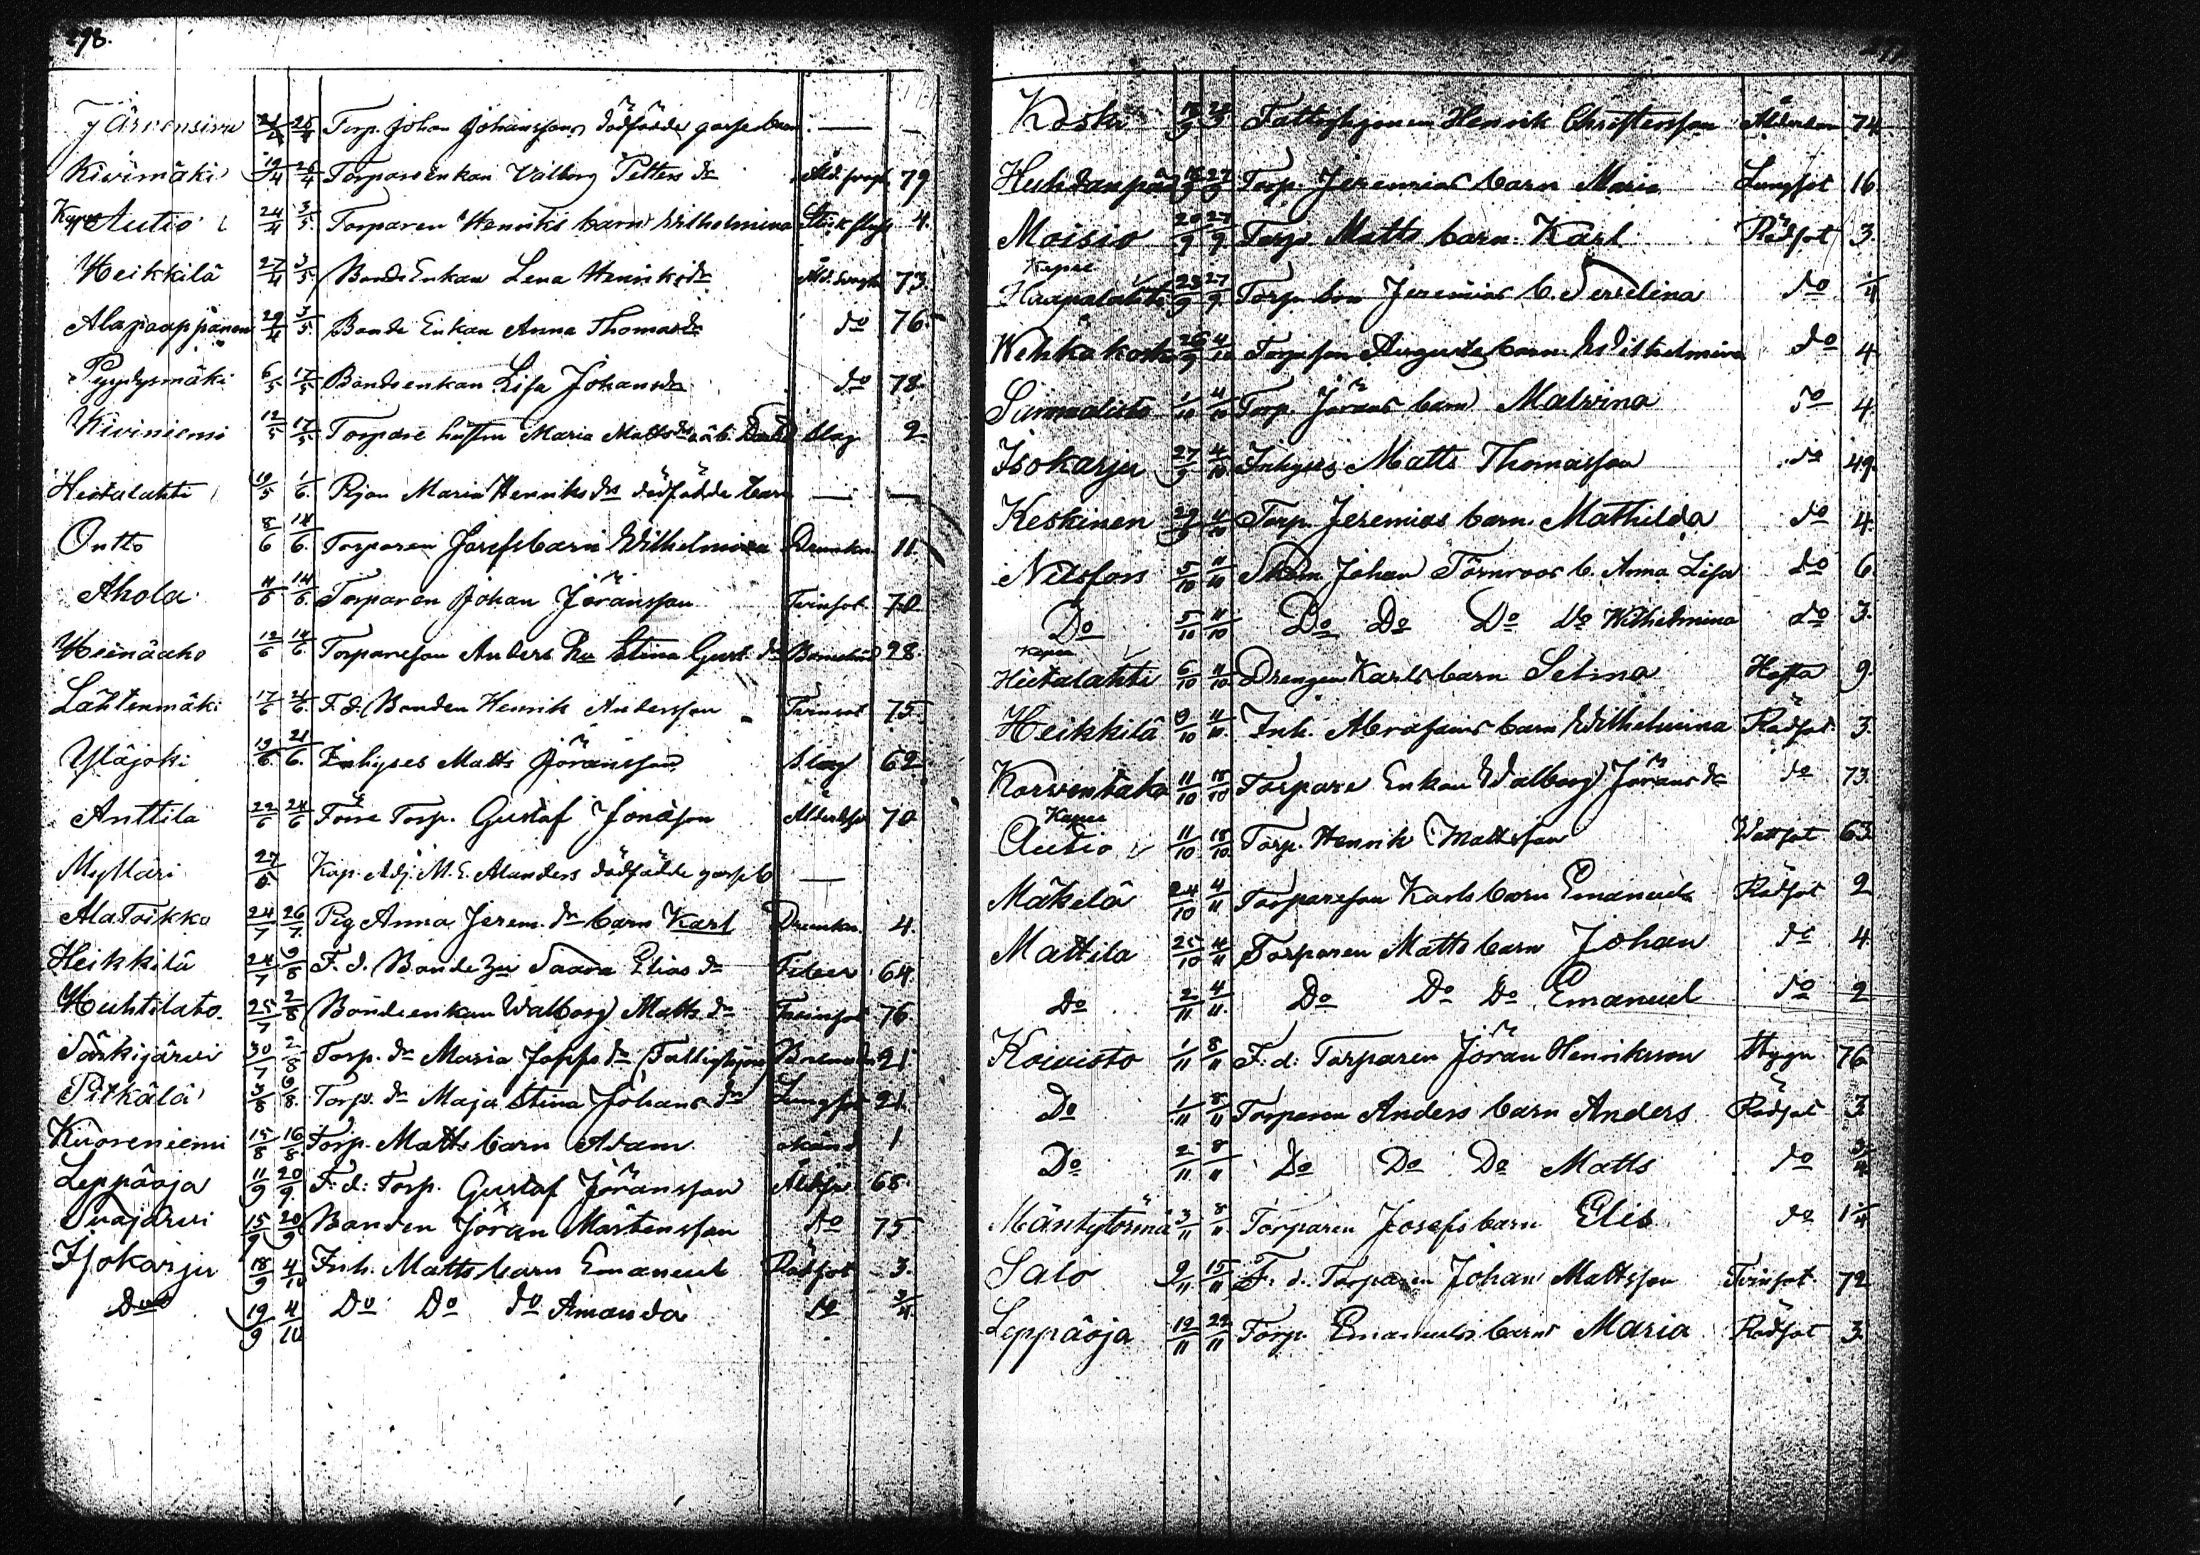 298.
Järvensivu 21/4 26/4 Torp. Johan Johanssons dödfödde gossebarn — —
Kivimäki 19/4 26/4 Torpareenkan Valborg Petters dr Åld. svagh 79
Autio 24/4 3/5 Torparen Henriks barn Wilhelmina 4.
Heikkilä 27/4 3/5 Bonde Enkan Lena Henriks dr Åld. svagh 73.
Alapaappanen 29/4 3/5 Bonde Enkan Anna Thomas dr do 76.
Pyydysmäki 6/5 17/5 Bondeenkan Lisa Johans dr do 78.
Kiviniemi 12/5 17/5 Torpare hustru Maria Matts dr Slag 2
Hietalahti 19/5 1/6 Pigan Maria Henriks dr dödfödde barn — —
Ontto 8/6 14/6 Torparen Josefs barn Wilhelmina Drunkn. 11.
Ahola 11/6 14/6 Torparen Johan Göransson Tvinsot 70
Heinäaho 12/6 14/6 Torpareson Anders hu Stina Gust. dr Barnsbörd 28.
Lähtenmäki 17/6 21/6 F. d. Bonden Henrik Andersson Tvinsot 75.
Yläjoki 19/6 21/6 Inhyses Matts Göransson Slag 62
Anttila 22/6 24/6 Förre Torp. Gustaf Jonasson 70
Myllari 27/6 Kap. Adj. M. E. Alanders dödfödde gosseb —
Ala Toikko 24/7 26/7 Pig Anna Jerem. dr barn Karl Drunkn. 4.
Heikkilä 24/7 9/8 F. d. Bonde hu Saara Elias dr Feber 64.
Huhtilato 25/7 2/8 Bondeenkan Walborg Matts dr Tvinsot 76.
Särkijärvi 30/7 2/8 Torp. dr Maria Josefs dr (Fattighjon) 21
Pitkälä 3/8 9/8 Torp. dr Maja Stina Johans dr Lungsot 21.
Kuoreniemi 15/8 16/8 Torp. Matts barn Adam okänd 1
Leppäoja 11/9 20/9 F. d. Torp. Gustaf Göransson Åldsv. 68.
Suajärvi 15/9 20/9 Bonden Göran Mårtensson do 75
Isokarju 18/9 4/10 Inh. Matts barn Emanuel Rödsot 3.
Do 19/9 4/10 Do Do do Amanda do 3/4
Koski Fattighjonen Henrik Christersson Ålderdom 74.
Huhdanpää Torp. Jeremias barn Maria Lungsot 16.
Moisio 20/9 27/9 Torp. Matts barn Karl Rödsot 3.
Haapalahti 23/9 27/9 Torp. Jeremias b. Serelina do 1/4
Wehkakoski 26/9 4/10 Torpson Augusts barn Wilhelmina do 4
Summalisto 1/10 4/10 Torp. Görans barn Malvina do 4.
Isokarju 27/9 4/10 Inhyses Matts Thomasson do 49.
Keskinen 29/9 4/10 Torp. Jeremias barn Mathilda do 4.
Nilsfors 5/10 11/10 Johan Törnroos b. Anna Lisa do 6
Do 5/10 11/10 Do Do Do do Wilhelmina do 3.
Hietalahti 6/10 11/10 Drengen Karls barn Selma Hosta 9.
Heikkilä 9/10 11/10 Inh. Abrahams barn Wilhelmina Rödsot 3.
Korventaka 11/10 18/10 Torpare Enkan Walborg Görans dr do 73.
Autio 11/10 18/10 Torp. Henrik Mattsson Wattsot 63.
Mäkelä 24/10 4/11 Torpareson Karls barn Emanuel Rödsot 2
Mattila 25/10 4/11 Torparen Matts barn Johan do 4.
Do 2/11 4/11 Do Do Do Emanuel do 2
Koivisto 1/11 8/11 F. d: Torparen Göran Henriksson Stygn 76
Do 1/11 8/11 Torparen Anders barn Anders Rödsot 3.
Do 2/11 8/11 Do Do Do Matts do 3/4
Mäntytörmä 3/11 8/11 Torparen Josefs barn Elis do 1 1/4
Salo 9/11 15/11 F. d. Torparen Johan Mattsson Tvinsot 72
Leppäoja 19/11 22/11 Torp. Emanuels barn Maria Rödsot 3.